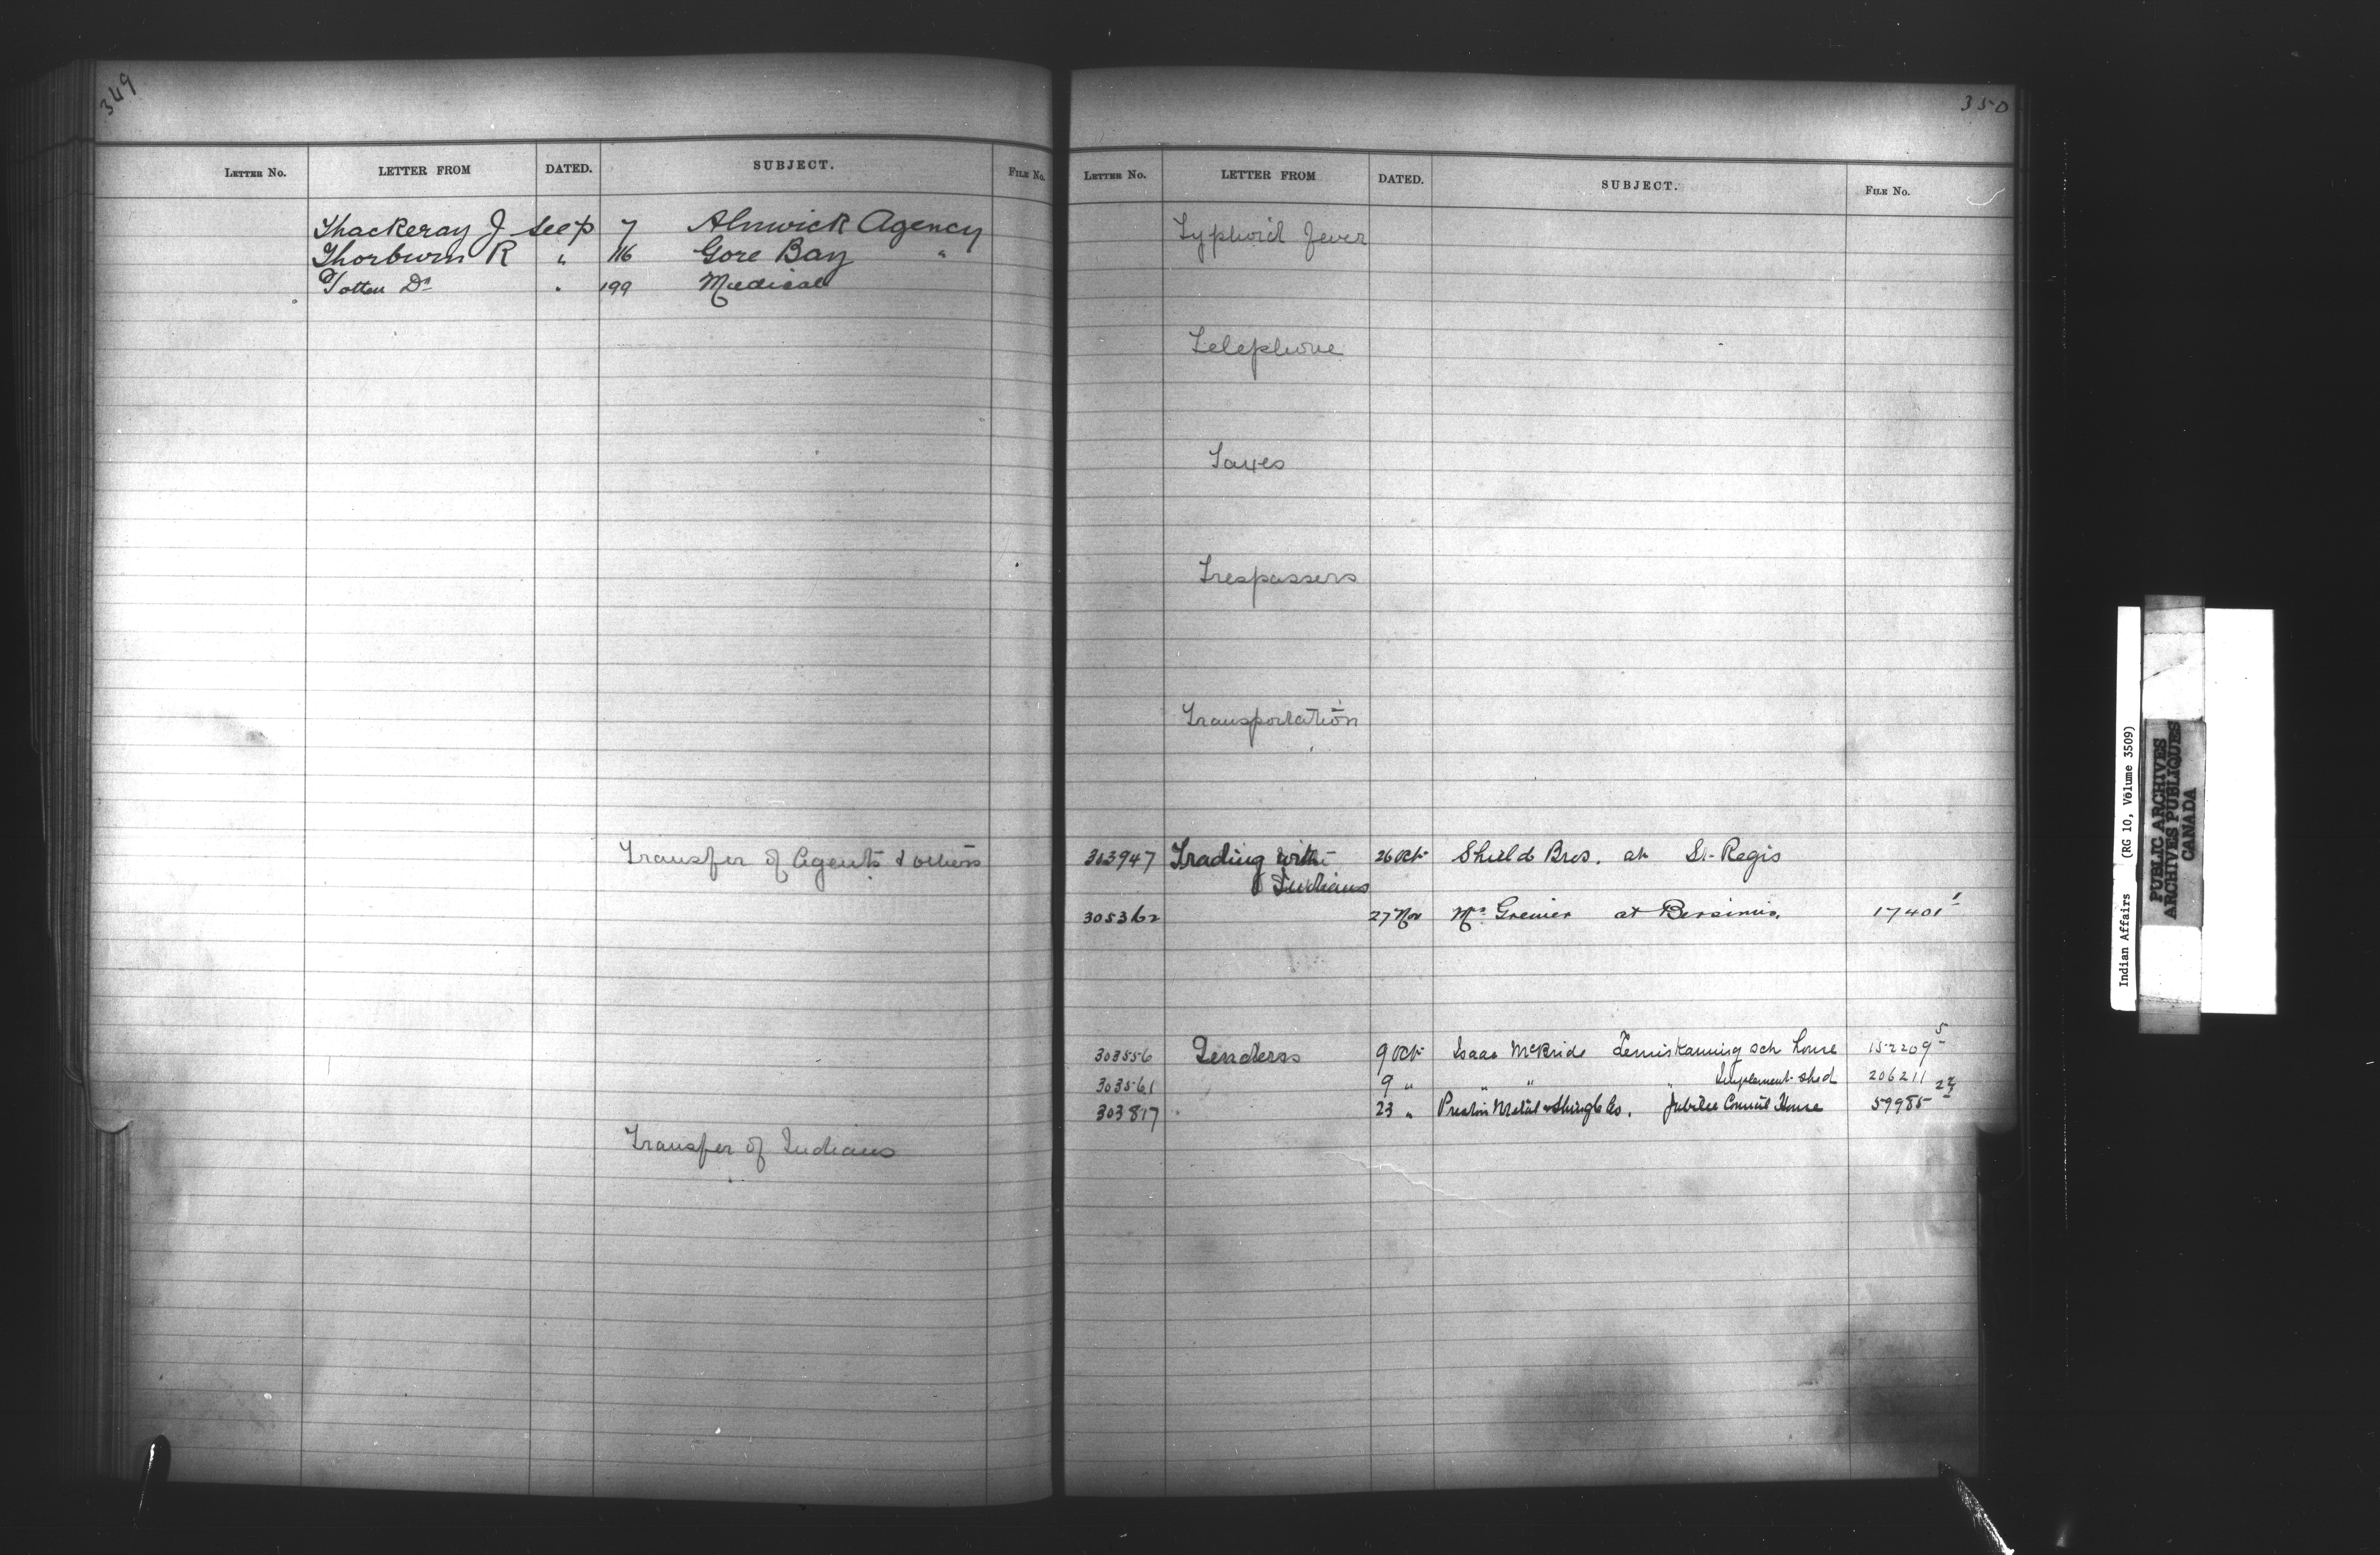 349
LETTER No. LETTER FROM DATED. SUBJECT. FILE No.
Thackeray J see p 7 Alnwick Agency
Thorburn R " 116 Gore Bay "
Totten Dr " 199 Medical
Transfer of Agents & others
Transfer of Indians
350
LETTER No. LETTER FROM DATED. SUBJECT. FILE No.
Typhoid Fever
Telephone
Taxes
Trespassers
Transportation
303947 Trading with 26 Oct Shield Bros. at St. Regis
Indians
305362 27 Nov Mrs Grenier at Bersimis. 17401 1
303556 Tenders 9 Oct Isaac McBride Temiskaming sch house 152209 5
303561 9 " " " " Implement shed 206211
303817 23 " Preston Metal & Shingle Co. Jubilee Council House 59985 22
Indian Affairs (RG 10, Volume 3509)
PUBLIC ARCHIVES
ARCHIVES PUBLIQUES
CANADA